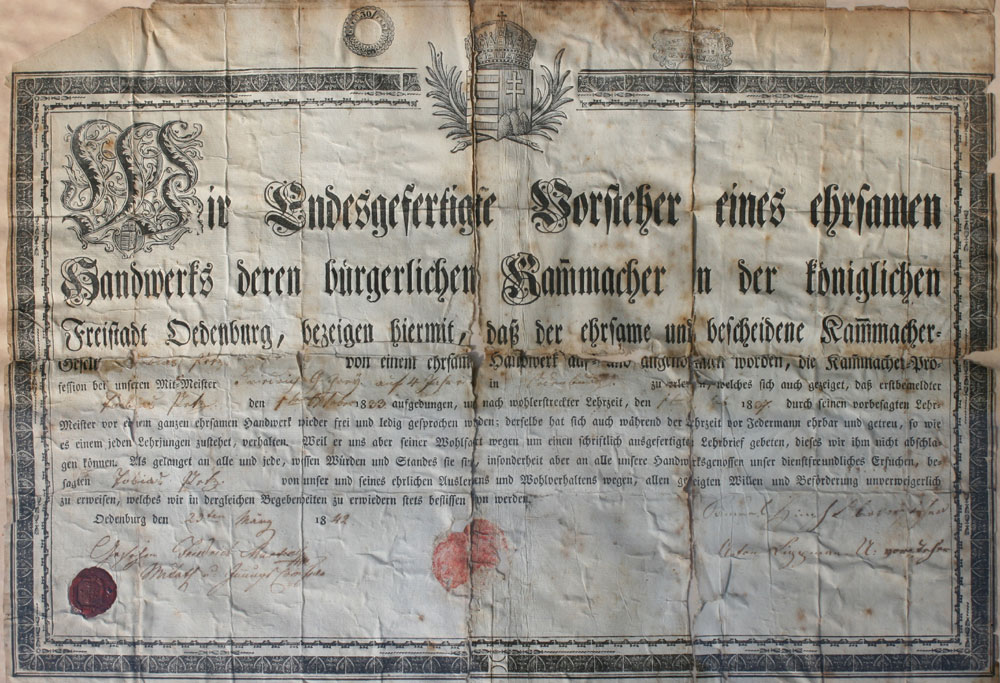 30
Wir Endesgefertigte Vorsteher eines ehrsamen
Handwerks deren bürgerlichen Kam̃macher in der königlichen
Freistadt Oedenburg, bezeigen hiermit, daß der ehrsame und bescheidene Kam̃macher-
Gesell von einem ehrsamen Handwerk auf- und angenommen worden, die Kam̃macher-Pro-
fession bei unseren Mit-Meister auf 4 Jahre in zu erlernen, welches sich auch gezeiget, daß erstbemeldter
Tobias Potz den 1833 aufgedungen, und nach wohlerstreckter Lehrzeit, den 1837. durch seinen vorbesagten Lehr-
Meister vor einem ganzen ehrsamen Handwerk wieder frei und ledig gesprochen worden; derselbe hat sich auch während der Lehrzeit vor Jedermann ehrbar und getreu, so wie
es einem jeden Lehrjungen zustehet, verhalten. Weil er uns aber seiner Wohlfart wegen um einen schriftlich ausgefertigten Lehrbrief gebeten, dieses wir ihm nicht abschla-
gen können. Als gelanget an alle und jede, wessen Würden und Standes sie sind, insonderheit aber an alle unsere Handwerksgenossen unser dienstfreundliches Ersuchen, be-
sagten Tobias Potz von unser und seines ehrlichen Auslernens und Wohlverhaltens wegen, allen geneigten Willen und Beförderung unverweigerlich
zu erweisen, welches wir in dergleichen Begebenheiten zu erwiedern stets beflissen sein werden.
Oedenburg den 23ten März 1842